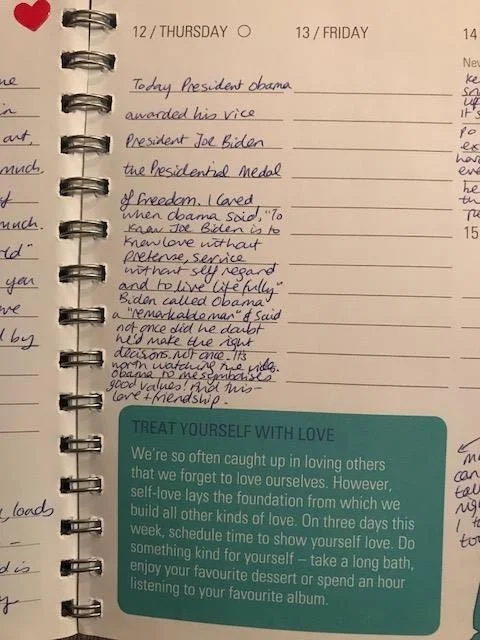 12 / THURSDAY
13 / FRIDAY
14
Today President Obama
awarded his vice
President Joe Biden
the Presidential Medal
of Freedom. I loved
when Obama said, "To
know Joe Biden is to
know love without
pretense, service
without self regard
and to live life fully"
Biden called Obama
a "remarkable man" & said
not once did he doubt
he'd make the right
decisions. not once. It's
worth watching the video.
Obama to me symbolises
good values! And this -
love + friendship.
TREAT YOURSELF WITH LOVE
We're so often caught up in loving others
that we forget to love ourselves. However,
self-love lays the foundation from which we
build all other kinds of love. On three days this
week, schedule time to show yourself love. Do
something kind for yourself – take a long bath,
enjoy your favourite dessert or spend an hour
listening to your favourite album.
out,
much.
much.
you
by
loads
15